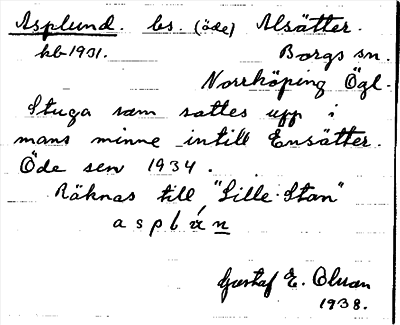 Asplund. bs. (öde) Alsätter.
kb 1931. Borgs sn.
Norrköping Ögl.
Stuga som sattes upp i
mans minne intill Ensätter.
Öde sen 1934.
Räknas till "Lille-Stan"
a s p b
Gustaf E. Olsson
1938.